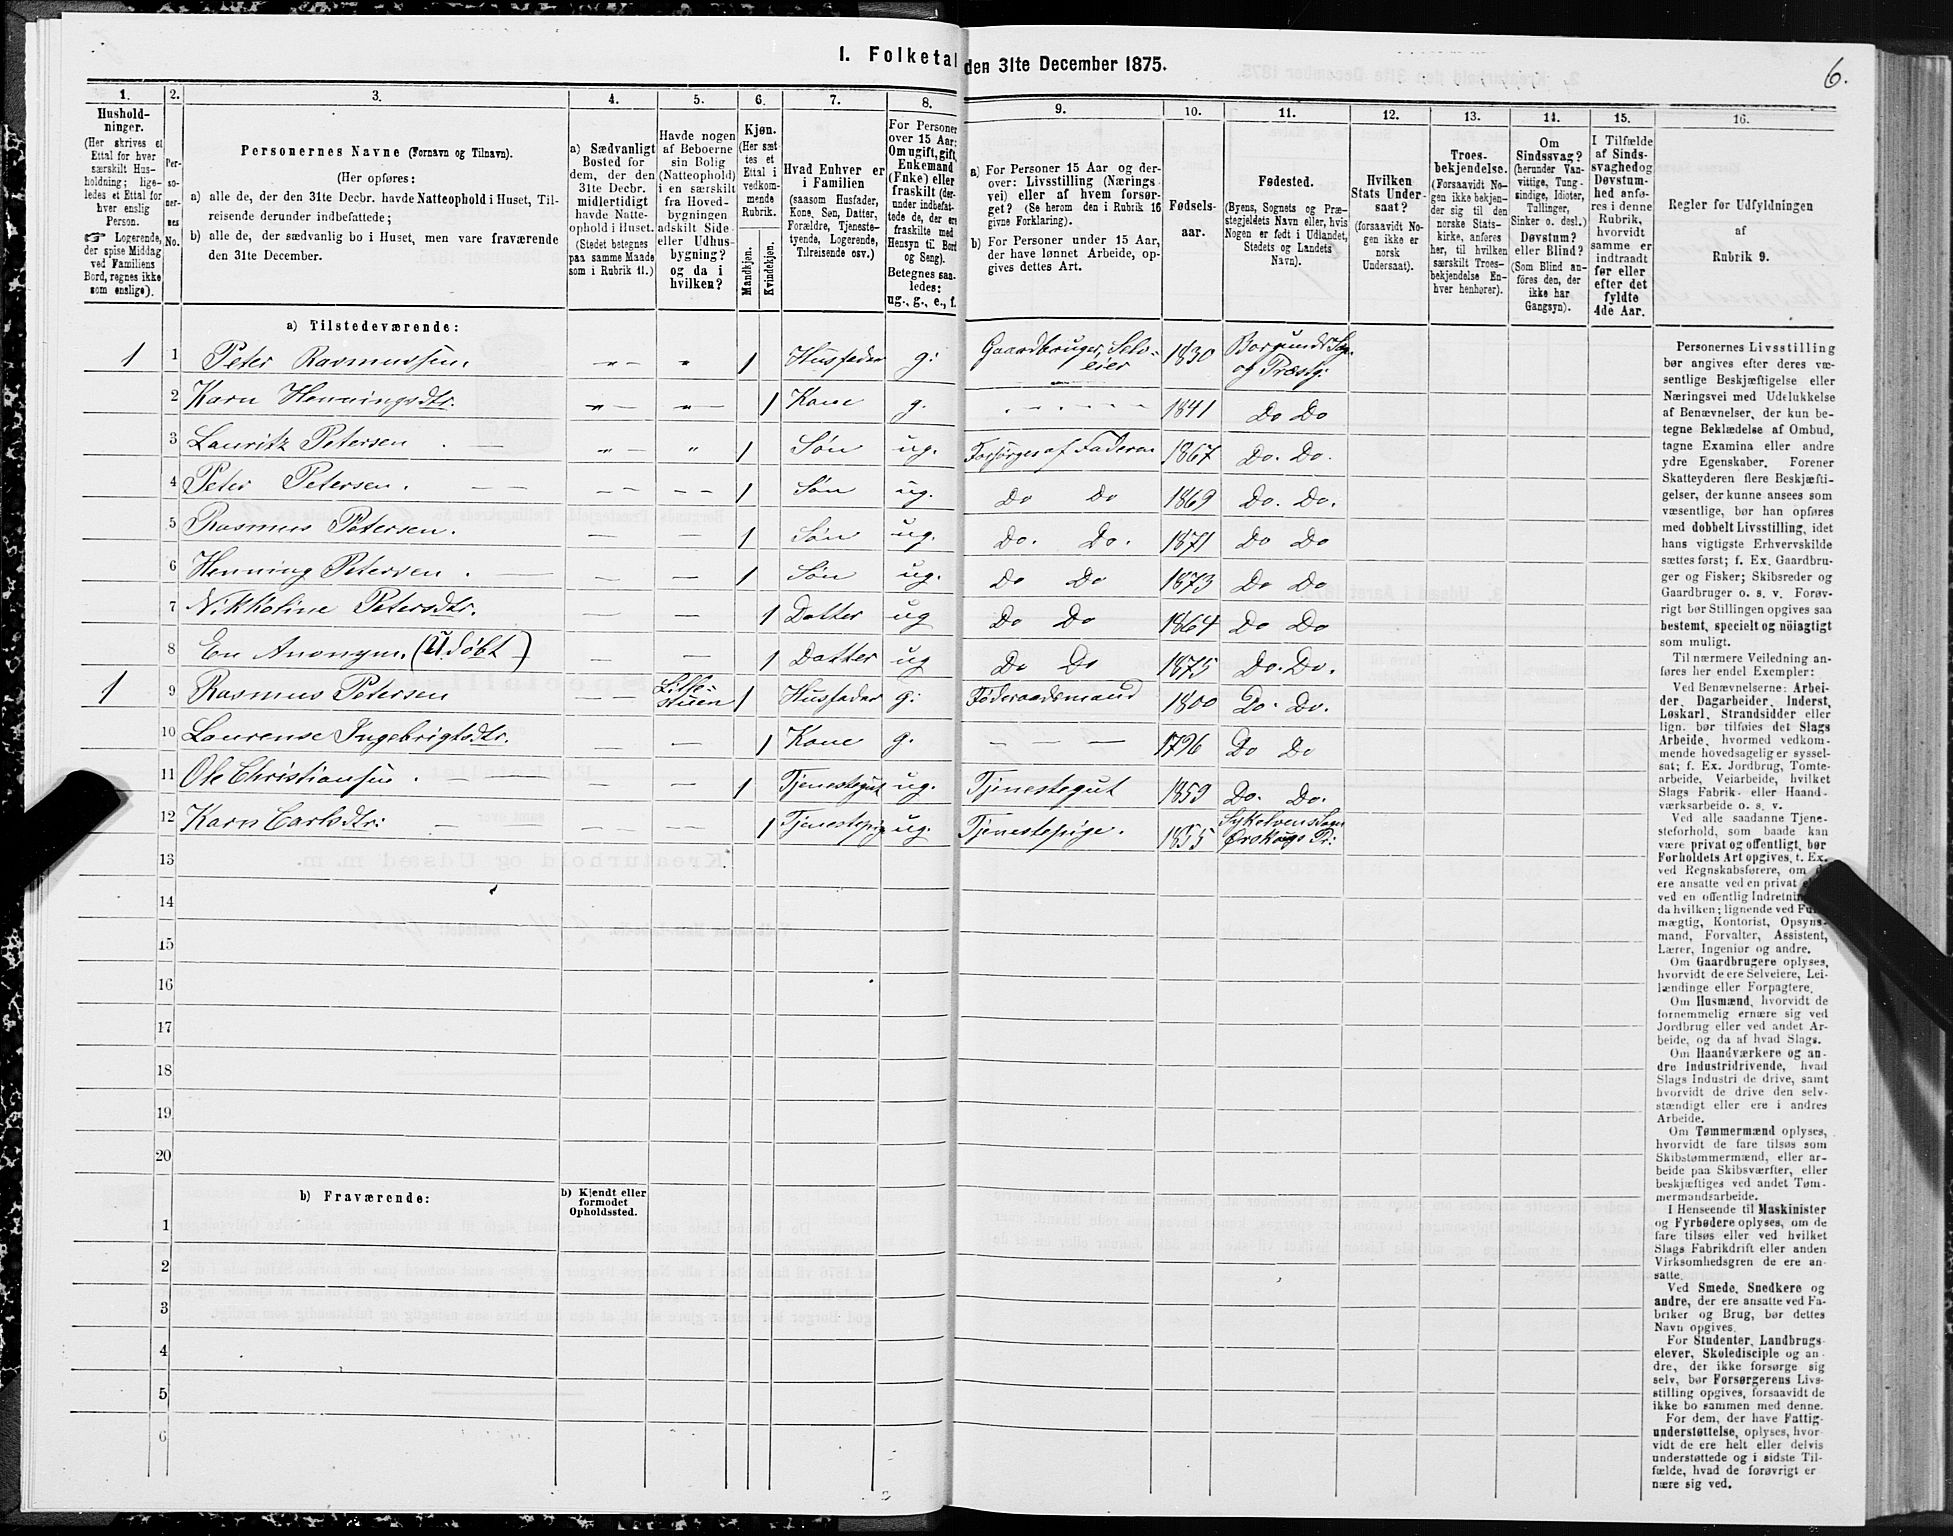 I. Folketal den 31te December 1875.
6.
1.
2.
3.
4.
5.
6.
7.
8.
9.
10.
11.
12.
13.
14.
15.
16.
Hushold-
ninger.
(Her skrives et
Ettal for hver
særskilt Hus-
holdning; lige-
ledes et Ettal for
hver enslig
Person.
☞ Logerende,
der spise Middag
ved Familiens
Bord, regnes ikke
som enslige).
Per-
so-
ner-
nes
No.
Personernes Navne (Fornavn og Tilnavn).
(Her opføres:
a) alle de, der den 31te Decbr. havde Natteophold i Huset, Til-
reisende derunder indbefattede;
b) alle de, der sædvanlig bo i Huset, men vare fraværende
den 31te December.
a) Sædvanligt
Bosted for
dem, der den
31te Decbr.
midlertidigt
havde Natte-
ophold i Huset.
(Stedet betegnes
paa samme Maade
som i Rubrik 11.)
Havde nogen
af Beboerne
sin Bolig
(Natteophold)
i en særskilt
fra Hoved-
bygningen
adskilt Side-
eller Udhus-
bygning?
og da i
hvilken?
Kjøn.
(Her sæt
tes et
Ettal i
vedkom-
mende
Rubrik.
Mandkjøn.
Kvindekjøn.
Hvad Enhver er
i Familien
(saasom Husfader,
Kone, Søn, Datter,
Forældre, Tjeneste-
tyende, Logerende,
Tilreisende osv.)
For Personer
over 15 Aar:
Om ugift, gift,
Enkemand
(Enke) eller
fraskilt (der-
under indbefat-
tede de, der ere
fraskilte med
Hensyn til Bord
og Seng).
Betegnes saa-
ledes:
ug., g., e., f.
a) For Personer 15 Aar og der-
over: Livsstilling (Nærings
vei) eller af hvem forsør-
get? (Se herom den i Rubrik 16
givne Forklaring).
b) For Personer under 15 Aar,
der have lønnet Arbeide, op-
gives dettes Art.
Fødsels-
aar.
Fødested.
(Byens, Sognets og Præ-
stegjeldets Navn eller, hvis
Nogen er født i Udlandet,
Stedets og Landets
Navn).
Hvilken
Stats Under-
saat?
(forsaavidt No-
gen ikke er
norsk
Undersaat).
Troes-
bekjendelse.
(Forsaavidt No-
gen ikke bekjen-
der sig til den
norske Stats-
kirke, anføres
her, til hvilken
særskilt Troes-
bekjendelse En-
hver henhører).
Om
Sindssvag?
(herunder Van-
vittige, Tung-
sindige, Idioter,
Tullinger,
Sinker o. desl.)
Døvstum?
eller Blind?
(Som Blind an-
føres den, der
ikke har
Gangsyn).
I Tilfælde
af Sinds-
svaghed og
Døvstum-
hed anfø-
res i denne
Rubrik,
hvorvidt
samme er
indtraadt
før eller
efter det
fyldte
4de Aar.
Regler for Udfyldningen
af
Rubrik 9.
a) Tilstedeværende:
1 1 Peter Rasmussen. 1 Husfader g: Gaardbruger, Selv-eier 1830 Borgunds Sog. og Præstg:
2 Karn Henningsdtr. 1 Kone g. 1841 Do Do
3 Lauritz Petersen 1 Søn ug. Forsørges af Faderen 1867 Do. Do.
4 Peter Petersen. 1 Søn ug. Do Do 1869 Do. Do.
5 Rasmus Petersen. 1 Søn ug. Do. Do. 1871 Do Do
6 Henning Petersen. 1 Søn ug. Do Do 1873 Do Do
7 Nikkoline Petersdtr. 1 Datter ug Do Do 1864 Do Do
8 En Anonym. (Udøbt) 1 Datter ug Do Do 1875 Do. Do.
1 9 Rasmus Petersen Lille-stuen 1 Husfader g: Føderaadsmand 1800 Do. Do.
10 Laurense Ingebrigtsdtr. 1 Kone g. 1796 Do Do
11 Ole Christiansen. 1 Tjenestegut ug. Tjenestegut 1859 Do. Do.
12 Karn Carlsdtr: 1 Tjenestepig ug. Tjenestepige. 1855 Sykelvens Sogn Ørskougs Pr:
13
14
15
16
17
18
19
20
b) Fraværende:
b) Kjendt eller
formodet
Opholdssted.
1
2
3
4
5
6
Personernes Livsstilling
bør angives efter deres væ-
sentlige Beskjæftigelse eller
Næringsvei med Udelukkelse
af Benævnelser, der kun be-
tegne Beklædelse af Ombud,
tagne Examina eller andre
ydre Egenskaber. Forener
Skatteyderen flere Beskjæfti-
gelser, der kunne ansees som
væsentlige, bør han opføres
med dobbelt Livsstilling, idet
hans vigtigste Erhvervskilde
sættes først; f. Ex. Gaardbru-
ger og Fisker; Skibsreder og
Gaardbruger o. s. v. Forøv-
rigt bør Stillingen opgives saa
bestemt, specielt og nöiagtigt
som muligt.
Til nærmere Veiledning an-
føres her endel Exempler:
Ved Benævnelserne: Arbei-
der, Dagarbeider, Inderst,
Løskarl, Strandsidder eller
lign. bør tilføies det Slags
Arbeide, hvormed vedkom-
mende hovedsagelig er syssel-
sat; f. Ex. Jordbrug, Tomte-
arbeide, Veiarbeide, hvilket
Slags Fabrik- eller Haand-
værksarbeide o. s. v.
Ved alle saadanne Tjene-
steforhold, som baade kan
være privat og offentligt, bør
Forholdets Art opgives, t. Ex.
ved Regnskabsførere, om de
ere ansatte ved en privat
ved en offentlig Indretning
da hvilken; lignende ved Ful-
mægtig, Kontorist, Opsyns-
mand, Forvalter, Assistent,
Lærer, Ingeniør og andre.
Om Gaardbrugere oplyses,
hvorvidt de ere Selveiere, Lei-
lændinge eller Forpagtere.
Om Husmænd, hvorvidt de
fornemmelig ernære sig ved
Jordbrug eller ved andet Ar-
beide, og da af hvad Slags.
Om Haandværkere og an-
dre Industridrivende, hvad
Slags Industri de drive, samt
hvorvidt de drive den selv-
stændigt eller ere i andres
Arbeide.
Om Tømmermænd oplyses,
hvorvidt de fare tilsøs som
Skibstømmermænd, eller ar-
beide paa Skibsværfter, eller
beskjæftiges ved andet Tøm-
mermandsarbeide.
I Henseende til Maskinister
og Fyrbødere oplyses, om de
fare tilsøs eller ved hvilket
Slags Fabrikdrift eller anden
Virksomhedsgren de ere an-
satte.
Ved Smede, Snedkere og
andre, der ere ansatte ved Fa-
briker og Brug, bør dettes
Navn opgives.
For Studenter, Landbrugs-
elever, Skoledisciple og an-
dre, der ikke forsørge sig
selv, bør Forsørgerens Livs-
stilling opgives, forsaavidt de
ikke bo sammen med denne.
For dem, der have Fattig-
understøttelse, oplyses, hvor-
vidt de ere helt eller delvis
understøttede og i sidste Til-
fælde, hvad de forøvrigt er
nære sig ved.